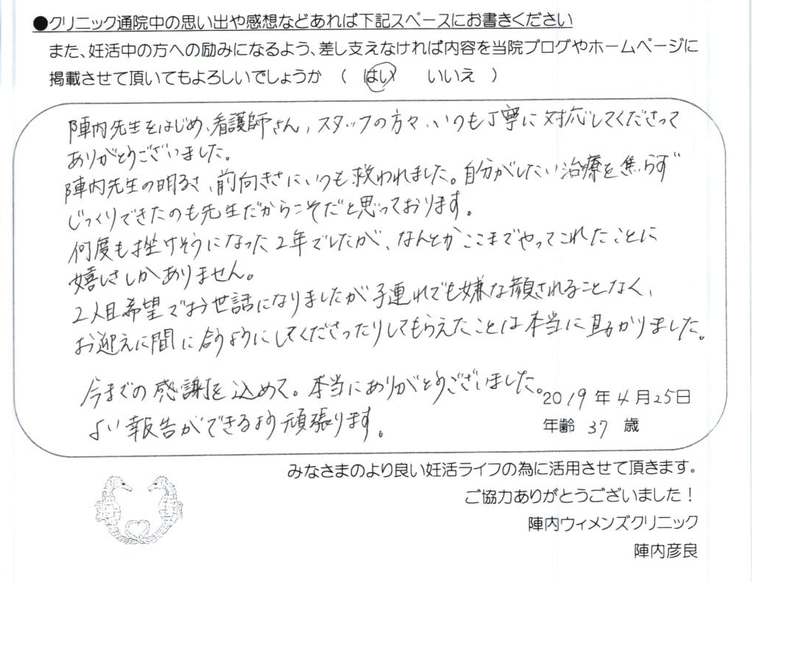 ●クリニック通院中の思い出や感想などあれば下記スペースにお書きください
また、妊活中の方への励みになるよう、差し支えなければ内容を当院ブログやホームページに
掲載させて頂いてもよろしいでしょうか （ はい いいえ ）
陣内先生をはじめ、看護師さん、スタッフの方々、いつも丁寧に対応してくださって
ありがとうございました。
陣内先生の明るさ、前向きさにいつも救われました。自分がしたい治療を焦らず
じっくりできたのも先生だからこそだと思っております。
何度も挫けそうになった2年でしたが、なんとかここまでやってこれたことに
嬉しさしかありません。
2人目希望でお世話になりましたが子連れでも嫌な顔されることなく、
お迎えに間に合うようにしてくださったりしてもらえたことは本当に助かりました。
今までの感謝を込めて。本当にありがとうございました。
よい報告ができるよう頑張ります。
2019年4月25日
年齢 37 歳
みなさまのより良い妊活ライフの為に活用させて頂きます。
ご協力ありがとうございました！
陣内ウィメンズクリニック
陣内彦良